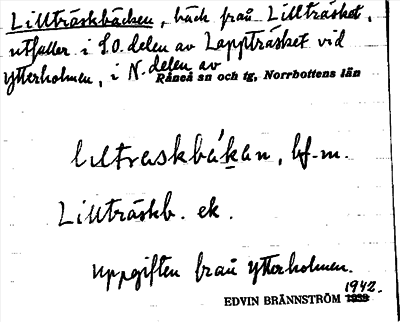 Lillträskbäcken, bäck från Lillträsket,
utfaller i S.O. delen av Lappträsket vid
Ytterholmen, i N. delen av
Råneå sn och tg, Norrbottens län
lıltraskbäkan, bf. m.
Lillträskb. ek.
Uppgiften från Ytterholmen.
1942.
EDVIN BRÄNNSTRÖM 1939